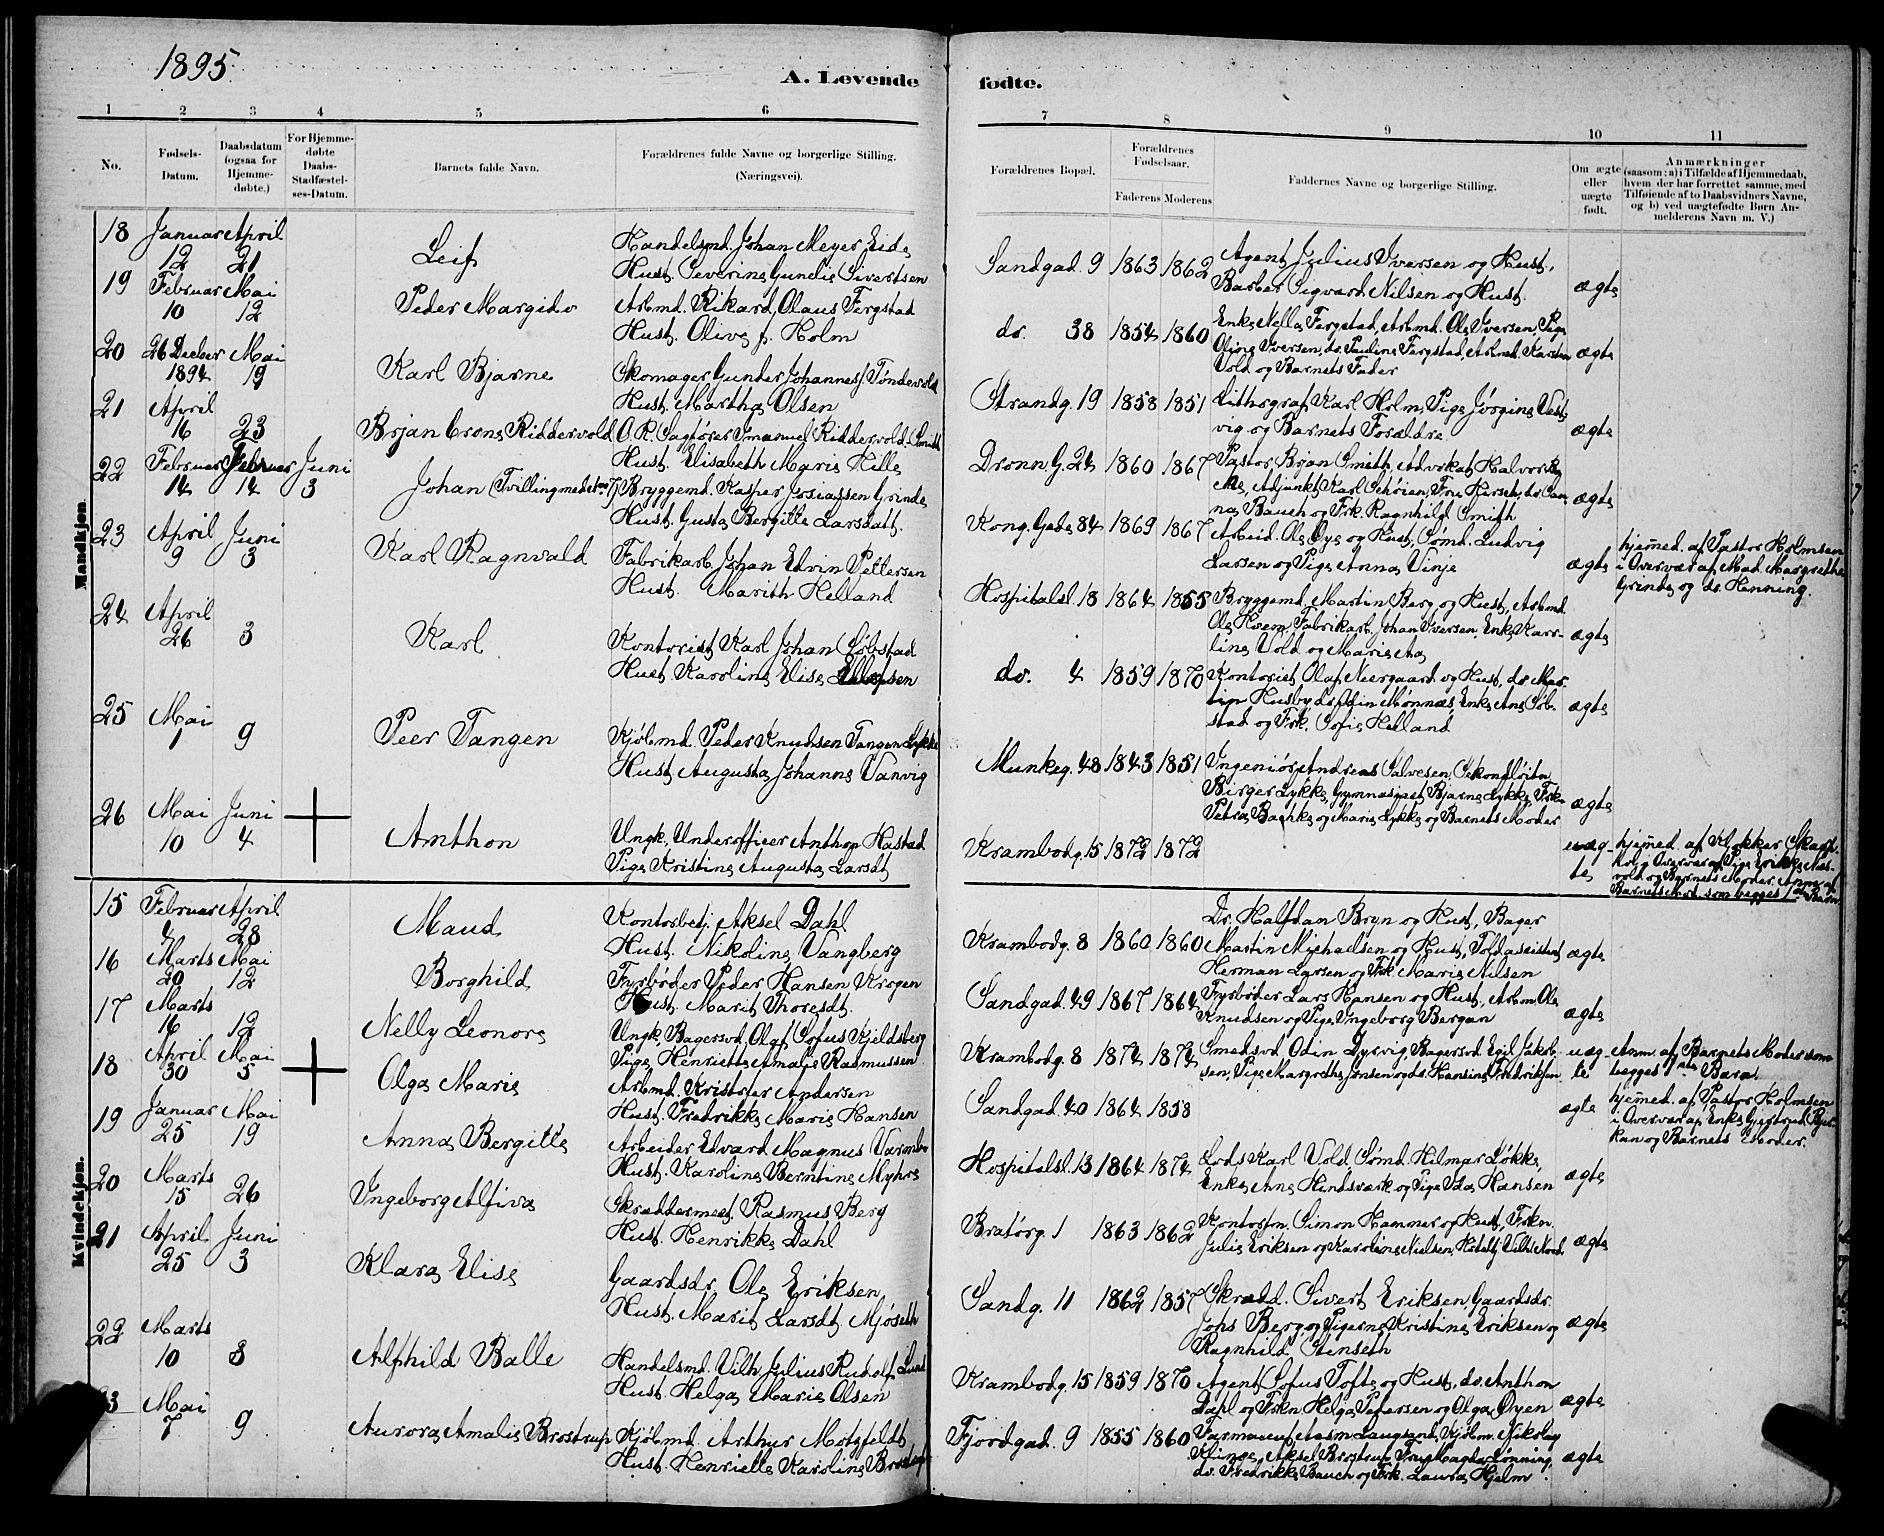 1895.
A. Levende fødte.
1 2 3 4 5 6 7 8 9 10 11
No.
Fødsels-Datum.
Daabsdatum (ogsaa for Hjemmedøbte.)
For Hjemmedøbte Daabs-Stadfæstelses-Datum.
Barnets fulde Navn.
Forældrenes fulde Navne og borgerlige Stilling. (Næringsvei).
Forældrenes Bopæl.
Forældrenes Fødselsaar.
Faderens Moderens
Faddernes Navne og borgerlige Stilling.
Om ægte eller uægte født.
Anmærkninger (saasom: a) i Tilfælde af Hjemmedaab, hvem der har forrettet samme, med Tilføiende af to Daabsvidners Navne, og b) ved uægtefødte Børn Anmelderens Navn m. V.)
Mandkjøn
18 Januar 12 April 21 Leif
Handelsmd. Johan Meyer Eide
Hust. Severine Gunelie Sivertsen
Sandgad. 9 1863 1862
Agent Julius Iversen og Hust,
Barber Sigvard Nilsen og Hust.
ægte
19 Februar 10 Mai 12 Peder Margido
Arbmd. Rikard Olaus Fergstad
Hust. Olive f. Holm
do. 38 1854 1860
Enke Nella Fergstad, Arbmd. Ole Iversen, Pige
Oline Iversen, do. Pauline Fergstad, Arbmd. Karsten
Vold og Barnets Fader
ægte
20 26 Decber 1894 Mai 19 Karl Bjarne
Skomager Gunder Johannes J. Tøndervold
Hust. Martha Olsen
Strandg. 19 1858 1851
Lithograf Karl Holm, Pige Jørgine Vest-
vig og Barnets Forældre
ægte
21 April 16 23 Brjan Crone Riddervold
O. R. Sagfører Imanuel Riddervold Smith
Hust. Elisabeth Marie Hille
Dronn. G. 24 1860 1867
Pastor Brjan Smith, Advokat Halvor
Adjunkt Karl Schøien, Frue Hersch, do
Bauch og Frk. Ragnhild Smith
ægte
22 Februar 14 Februar 14 Juni 3 Johan (Tvilling med
Bryggemd. Kasper Josiassen Grinde
Hust. Gusta Bergitte Larsdatt.
Kong. Gade 84 1869 1867
Arbeid. Ole Øye og Hust, Sømd. Ludvig
Larsen og Pige Anna Vinje
ægte
hjemmed. af Pastor Holmsen
i Overvær af Mad. Margrethe
Grinde og do. Henning.
23 April 9 Juni 3 Karl Ragnvald
Fabrikarb. Johan Edvin Pettersen
Hust. Marith Helland
Hospitalsl. 18 1864 1855
Bryggemd. Martin Berg og Hust, Arbmd.
Ole Hoem, Fabrikarb. Johan Iversen, Enke Karo-
line Vold og Marie Aa
ægte
24 April 26 3 Karl
Kontorist Karl Johan Søbstad
Hust. Karoline Elise Ellefsen
do. 4 1859 1870
Kontorist Olaf Neergaard og Hust, do. Mar-
tin Husby, do. Mønnæs, Enke Ane Søb-
stad og Frk. Sofie Helland
ægte
25 Mai 1 9 Peer Tangen
Kjøbmd. Peder Knudsen Tangen Lykke
Hust. Augusta Johanne Vanvig
Munkeg. 48 1843 1851
Ingeniør Andreas Salvesen, Sekondløitn.
Birger Lykke, Gymnasiast Bjarne Lykke, Frk.
Petra Bachke og Marie Lykke og Barnets Moder
ægte
26 Mai 10 Juni 4 Anthon
Ungk. Underofficer Anthon Hastad
Pige Kristine Augusta Larsdt.
Krambodg. 15 1872 1872
uæg-
te
hjemmed. af Klokker
i Overvær af Pige Erikka
vold og Barnets Moder. Anm. af
Barnets Mort. som begges 1ste Barn
Kvindekjøn.
15 Februar 4 April 28 Maud
Kontorbetj. Aksel Dahl
Hust. Nikoline Vangberg
Krambodg. 8 1860 1860
Dr. Halfdan Bryn og Hust, Bager
Martin Michaelsen og Hust, Toldassistent
Herman Larsen og Frk. Marie Nilsen
ægte
16 Marts 20 Mai 12 Borghild
Fyrbøder Peder Hansen Krogen
Hust. Marit Thoresdt.
Sandgad. 49 1867 1864
Fyrbøder Lars Hansen og Hust, Arbm. Ole
Knudsen og Pige Ingeborg Bergan
ægte
17 Marts 16 12 Nelly Leonore
Ungk. Bagersvd. Olaf Sofus Kjeldsberg
Pige Henriette Amalie Rasmussen
Krambodg. 8 1874 1874
Smedsvd. Odin Dyrvig, Bagersvd. Egil Jakob-
sen, Pige Margrethe Jonsen og do. Hansine Fredriksen
uæg-
te
Anm. af Barnets Moder som
begges 1ste Barn
18 April 30 Mai 5 Olga Marie
Arbmd. Kristofer Andersen
Hust. Fredrikke Marie Hansen
Sandgad. 40 1864 1858
ægte
hjemmed. af Pastor Holmsen
i Overvær af Enke Gjertrud
kan og Barnets Moder.
19 Januar 25 Mai 19 Anna Bergitte
Arbeider Edvard Magnus Varmbo
Hust. Karoline Berntine Myhre
Hospitalsl. 13 1864 1874
Lods Karl Vold, Sømd. Hilmar Løkke,
Enke Ane Hindsværk og Pige Ida Hansen
ægte
20 Marts 15 26 Ingeborg Alfiva
Skræddermest. Rasmus Berg
Hust. Henrikke Dahl
Bratørg. 1 1863 1862
Kontorfm. Simon Hammer og Hust, Frkn.
Julie Eriksen og Karoline Nielsen, Hotelbst. Vilh. Nord.
ægte
21 April 25 Juni 3 Klara Elise
Gaardsdr. Ole Eriksen
Hust. Marit Larsdt. Mjøseth
Sandg. 11 1862 1857
Skrædd. Sivert Eriksen, Gaardsdr.
Johs Berg og Pigerne Kristine Eriksen og
Ragnhild Stenseth
ægte
22 Marts 10 3 Alfhild Balle
Handelsmd. Vilh. Julius Rudolf Lund
Hust. Helga Marie Olsen
Krambodg. 15 1859 1870
Agent Sofus Tofte og Hust, do. Anthon
Dahl og Frkn Helga Pedersen og Olga Øyen
ægte
23 Mai 7 9 Aurora Amalie Brostrup
Kjøbmd. Arthur Motzfeldt
Hust. Henriette Karoline Brostrup
Fjordgad. 9 1855 1860
Varmæuf. Aasm. Laugsand, Kjøbm. Nikolay
Klinge, Aksel Brostrup, Frue Magda Lønning,
do. Fredrikke Bauch og Frk. Laura Hjelm
ægte